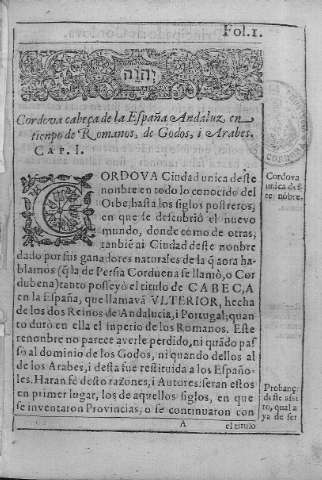 Fol. 1.
יהוה
Cordova cabeça de la España Andaluz en
tienpo de Romanos, de Godos, i Arabes.
CAP. I.
CORDOVA Ciudad unica deste
nonbre en todo lo conocido del
Orbe, hasta los siglos postreros,
en que se descubriô el nuevo
mundo, donde como de otras,
tanbiē ai Ciudad deste nonbre
dado por sus ganadores naturales de la q̄ aora ha-
blamos (q̄ la de Persia Corduena se llamô, o Cor
dubena) tanto posseyô el titulo de CABEÇA
en la España, que llamavā VLTERIOR, hecha
de los dos Reinos de Andalucia, i Portugal; quan
to durô en ella el inperio de los Romanos. Este
renonbre no parece averle perdido, ni quādo pas
sô al dominio de los Godos, ni quando dellos al
de los Arabes, i desta fue restituida a los Españo-
les. Haran fé desto razones, i Autores: seran estos
en primer lugar, los de aquellos siglos, en que
se inventaron Provincias, o se continuaron con
A
el titulo
Cordova
unica des
te nōbre.
Probanç
deste asū
to, qual a
ya de ser